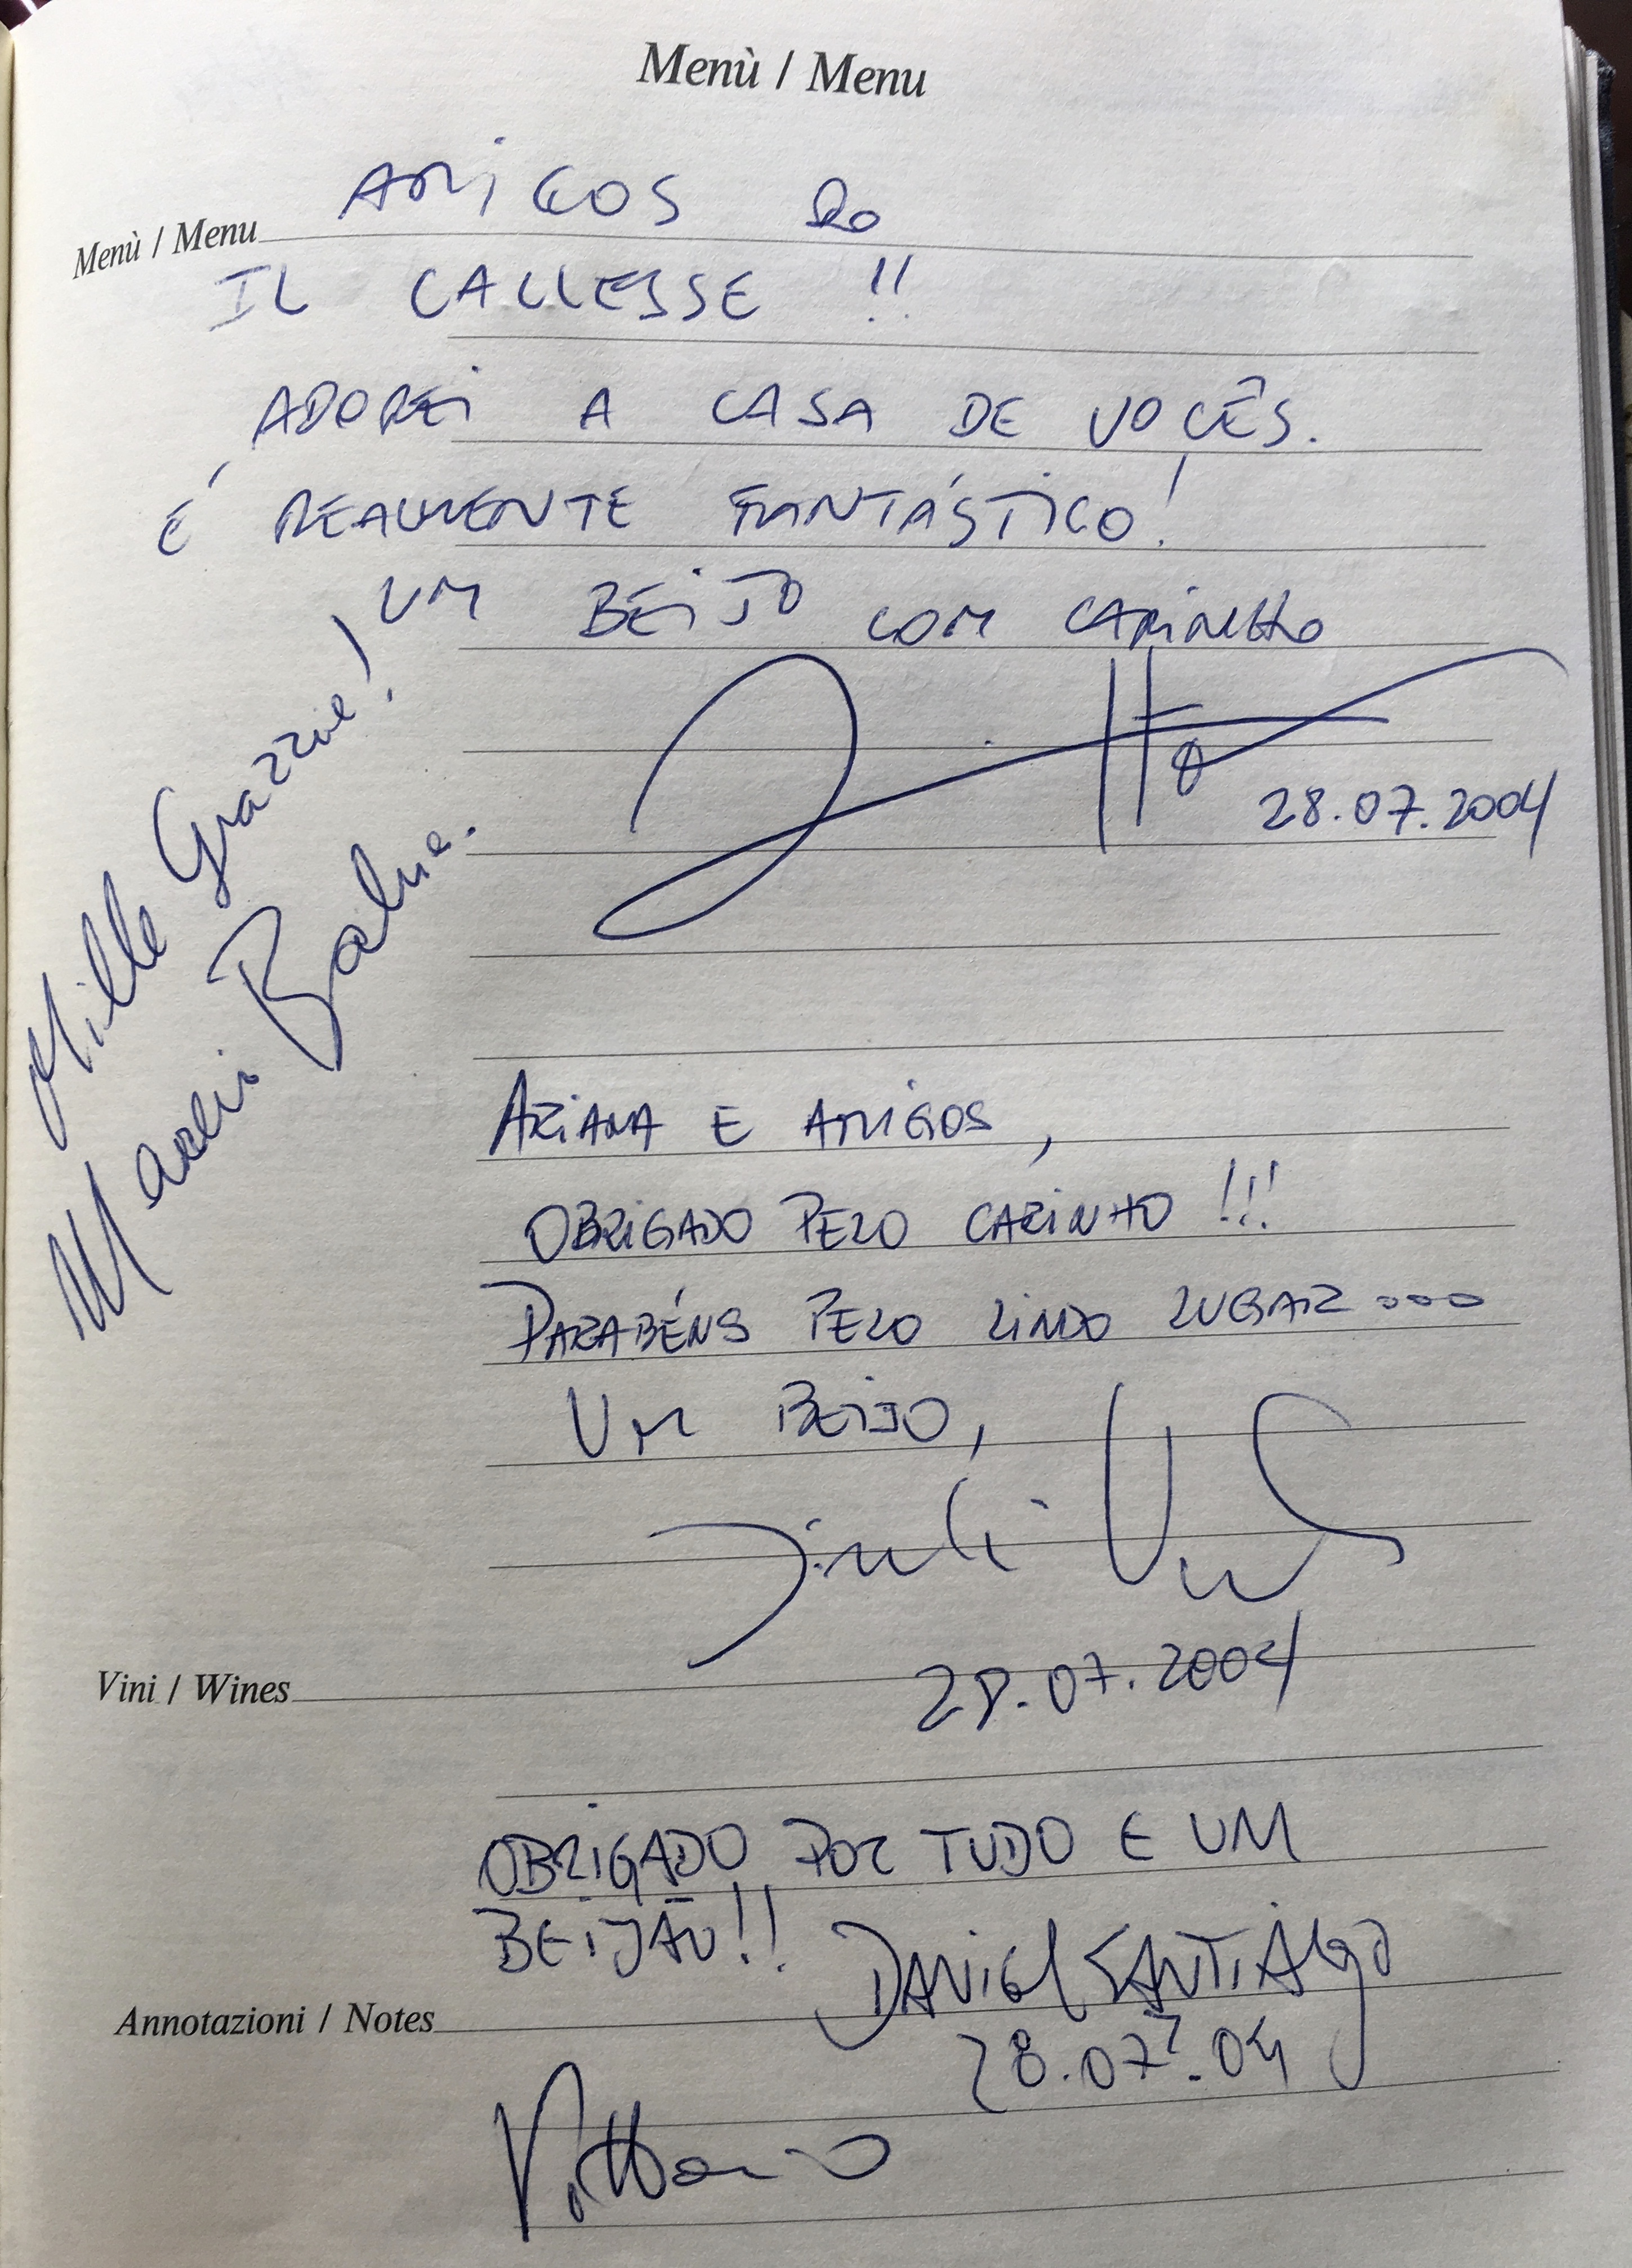 Menù / Menu
Menù / Menu
AMIGOS do
IL CALLESSE !!
ADOREI A CASA DE VOCÊS.
É REALMENTE FANTÁSTICO!
UM BEIJO COM CARINHO
28.07.2004
Mille Grazzie!
ARIANA E AMIGOS,
OBRIGADO PELO CARINHO !!!
PARABÉNS PELO LINDO LUGAR...
UM BEIJO,
28.07.2004
Vini / Wines
OBRIGADO POR TUDO E UM
BEIJÃO!! DANIEL SANTIAGO
28.07.04
Annotazioni / Notes